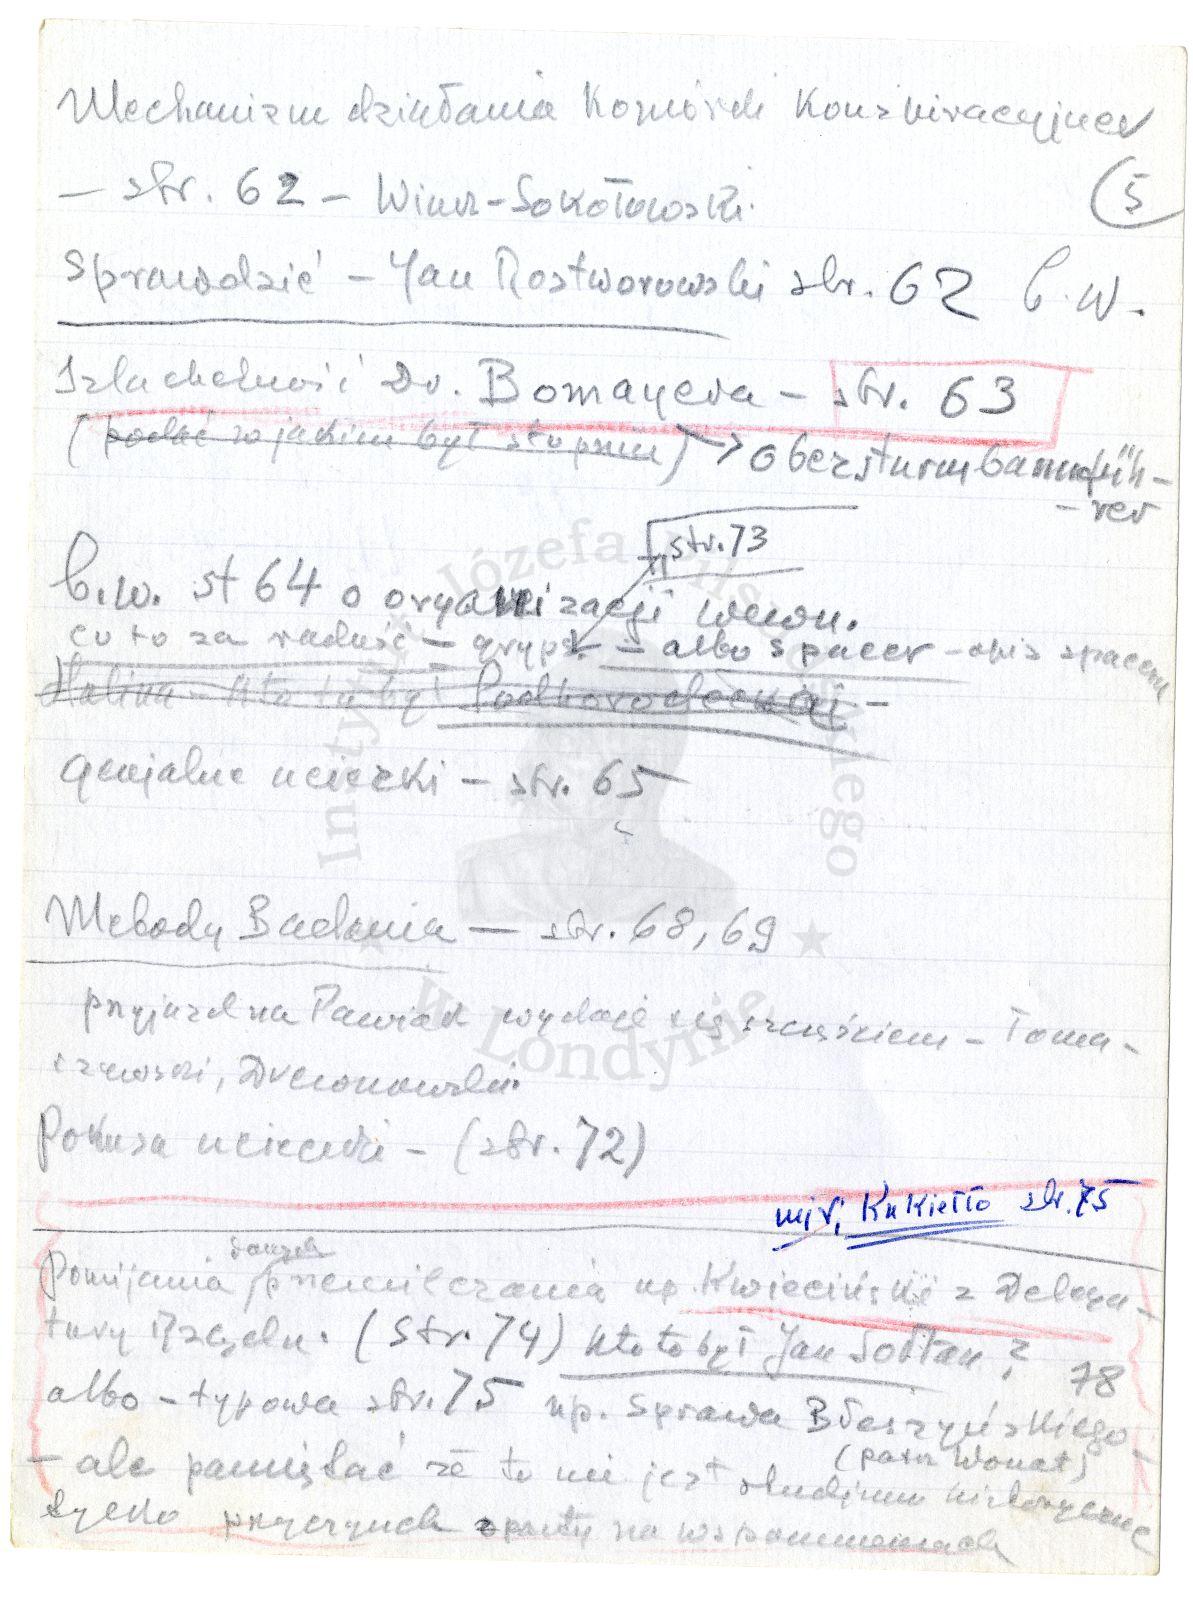 Mechanizm działania Komórki Konspiracyjnej
5
– str. 62 – Winer-Sokołowski.
Sprawdzić – Jan Rostworowski str. 62 b.w.
Szlachetność Dr. Bomayera – str. 63
(podać w jakim był stopniu) → Obersturmbannfüh-
- rer
str. 73
b.w. st 64 o organizacji wewn.
co to za radość – gryps – albo spacer – opis spaceru
Halina – kto to był
genjalne ucieczki – str. 65
Metody Badania – str. 68, 69
przyjazd na Pawiak wydaje się szczęściem – Toma-
szewski, Drewnowski.
Pokusa ucieczki – (str. 72)
mjr. Kukiełło str. 75
Pomijania przemilczania np. Kwieciński z Delega-
tury Rządu. (Str. 74) Kto to był Jan Sołtan? 78
albo – typowa str. 75 np. Sprawa Błeszyńskiego –
(patrz Wonat)
– ale pamiętać że to nie jest studjum historyczne
tylko przyczynek oparty na wspomnieniach
Instytut Józefa Piłsudskiego
w Londynie